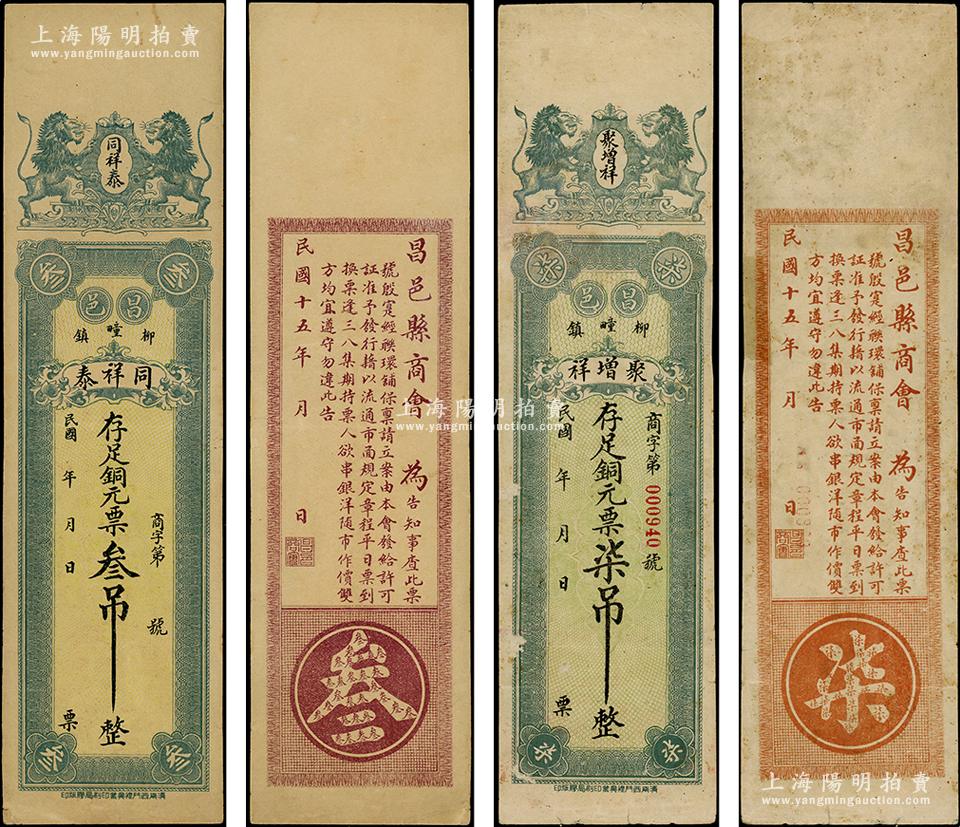 上海陽明拍賣
www.yangmingauction.com
同祥泰
叁
叁
昌邑
柳疃鎮
同祥泰
存足銅元票叁吊整
商字第 號
民國 年 月 日 票
叁
叁
濟南西門裡興業印刷局膠版印
昌邑縣商會為
告知事查此票
號殷寔經聯環舖保稟請立案由本會發給許可
証准予發行藉以流通市面規定章程平日票到
換票逢三八集期持票人欲串銀洋隨市作價雙
方均宜遵守勿違此告
民國十五年 月 日
叁
聚增祥
柒
柒
昌邑
柳疃鎮
聚增祥
商字第000940號
存足銅元票柒吊整
民國 年 月 日 票
柒
柒
濟南西門裡興業印刷局膠版印
昌邑縣商會為
告知事查此票
號殷寔經聯環舖保稟請立案由本會發給許可
証准予發行藉以流通市面規定章程平日票到
換票逢三八集期持票人欲串銀洋隨市作價雙
方均宜遵守勿違此告
民國十五年 月 日
柒
上海陽明拍賣
www.yangmingauction.com
上海陽明拍賣
www.yangmingauction.com